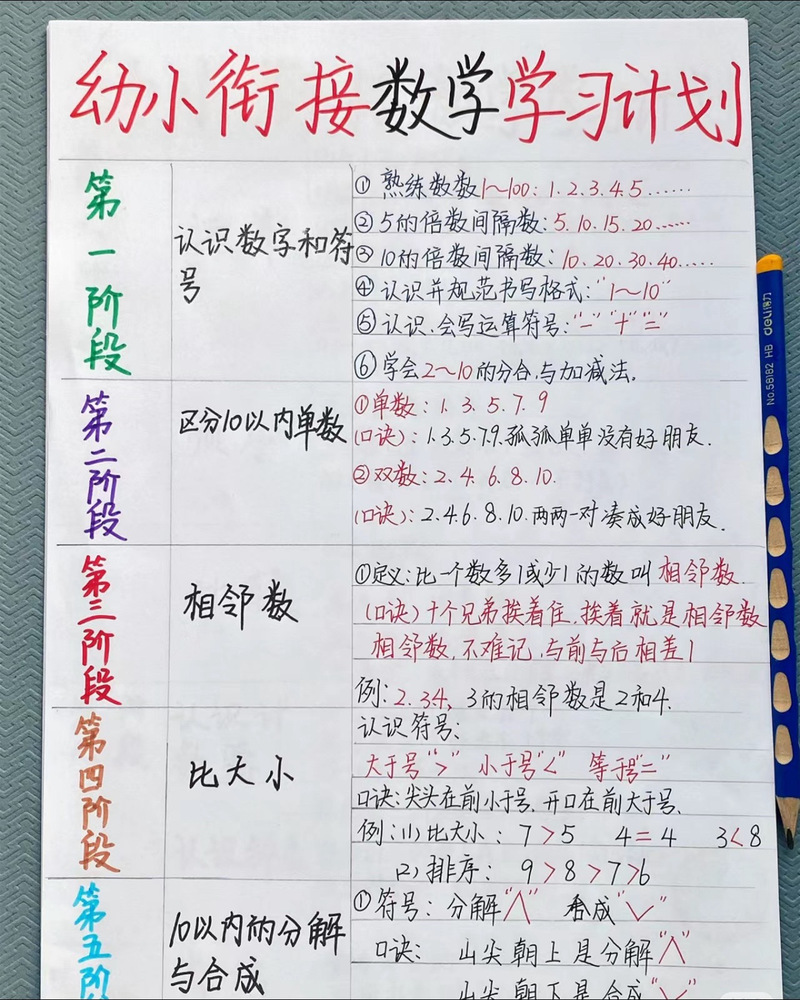 幼小衔接数学学习计划
第一阶段
认识数字和符
号
①熟练数数1~100:1.2.3.4.5......
②5的倍数间隔数:5.10.15.20......
③10的倍数间隔数:10.20.30.40.....
④认识并规范书写格式:"1~10"
⑤认识.会写运算符号:"-""+""="
⑥学会2~10的分合.与加减法。
第二阶段
区分10以内单数
①单数:1.3.5.7.9
(口诀):1.3.5.7.9.孤孤单单没有好朋友.
②双数:2.4.6.8.10.
(口诀):2.4.6.8.10.两两一对凑成好朋友.
第三阶段
相邻数
①定义:比一个数多1或少1的数叫相邻数.
(口诀)十个兄弟挨着住.挨着就是相邻数
相邻数.不难记.与前与后相差1
例:2.34,3的相邻数是2和4.
第四阶段
比大小
认识符号:
大于号">" 小于号"<" 等于号"="
口诀:尖头在前小于号.开口在前大于号.
例:(1)比大小:7>5 4=4 3<8
(2)排序:9>8>7>6
第五阶
10以内的分解
与合成
①符号:分解"∧" 合成"∨"
口诀: 山尖朝上是分解"∧"
山尖朝下是合成"∨"
deli得力
No.58182 HB